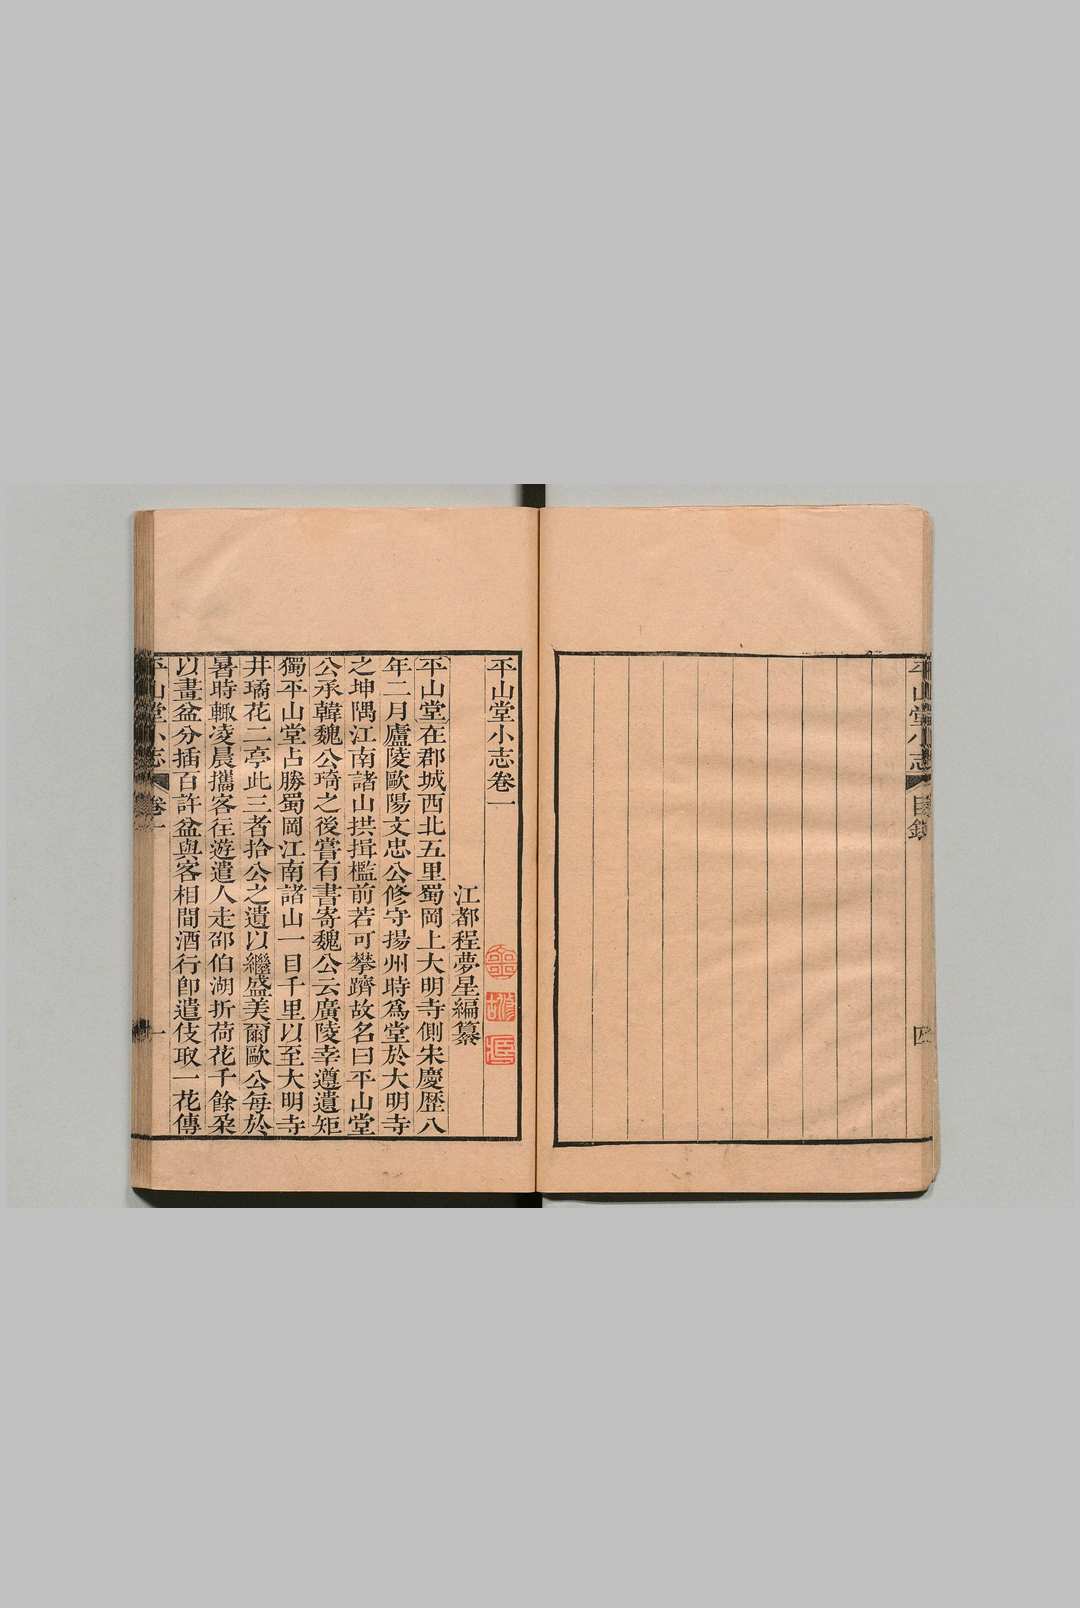 平山堂小志
目錄
四
平山堂小志卷一
江都程夢星編纂
平山堂在郡城西北五里蜀岡上大明寺側宋慶歷八
年二月廬陵歐陽文忠公修守揚州時爲堂於大明寺
之坤隅江南諸山拱揖檻前若可攀躋故名曰平山堂
公承韓魏公琦之後嘗有書寄魏公云廣陵幸遵遺矩
獨平山堂占勝蜀岡江南諸山一目千里以至大明寺
井璚花二亭此三者拾公之遺以繼盛美爾歐公每於
暑時輙凌晨攜客往遊遣人走邵伯湖折荷花千餘朶
以畫盆分插百許盆與客相間酒行卽遣伎取一花傳
平山堂小志
卷一
一